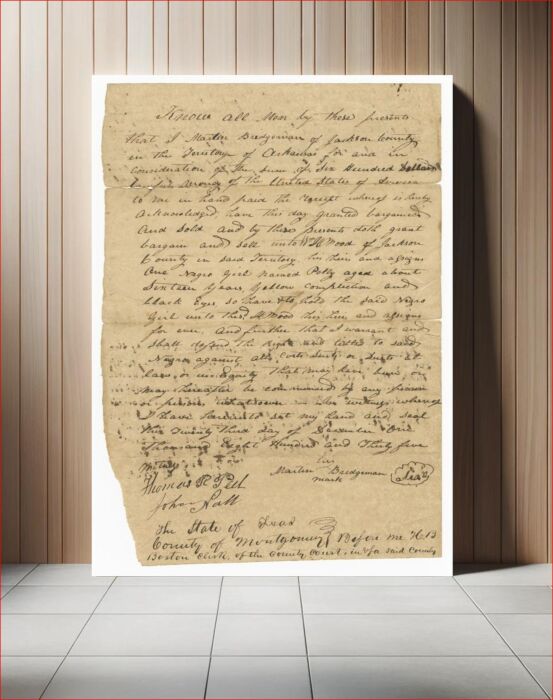 Know all Men by these presents
that I Martin Bredgeman of Jackson County
in the Territory of Arkansas for and in
consideration of the sum of Six Hundred Dollars
Lawful money of the United States of America
to me in hand paid the receipt whereof is hereby
Acknowledged, have this day granted bargained
And Sold and by these presents doth grant
bargain and sell unto W H Wood of Jackson
County in said Territory his heirs and assigns
One Negro Girl named Polly aged about
Sixteen Years, Yellow complection and
black Eyes to have & to hold the said Negro
Girl unto the sd H Wood his heirs and assigns
for ever, And further that I warrant and
shall defend the Right and title to said
Negro against all Suits or Suits at
law or in Equity that may have been or
may thereafter be commenced by any person
or persons whatsoever In witness whereof
I have hereunto set my hand and seal
this Twenty third day of December One
Thousand Eight Hundred and Thirty five
Witness
his
Martin Bredgeman Seal
mark
Thomas
John Hall
The State of Texas
County of Montgomery Before me H B
Boston Clerk of the County Court, in & for said County